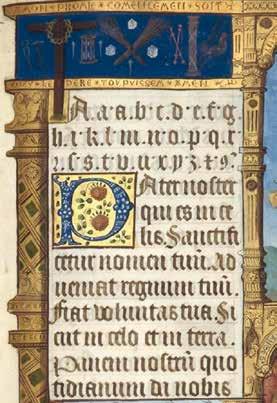 MON PROMIE COMENCEMEN SOIT
RE DERE TOV PVISSEM AMEN
A. a. a. b. c. d. e. f. g.
h. i. k. l. m. n. o. p. q. r.
ꝛ. ſ. s. t. v. u. x. y. z. ⁊. ꝯ.
Pater noster
qui es in ce
lis. Sanctifi
cetur nomen tuū. Ad
ueniat regnum tuū.
Fiat voluntas tua. Si
cut in celo et in terra.
Panem nostrū quo
tidianum da nobis